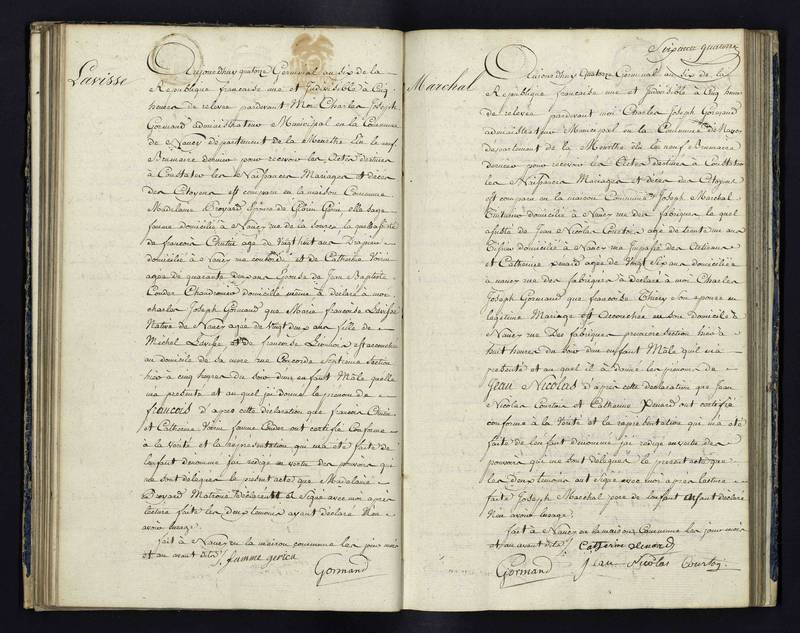 Lavisse
Aujourdhuy quatorze Germinal an six de la
Republique francaise une et Indivisible à Cinq
heures de relevée pardevant Moi Charles Joseph
Gormand administrateur Municipal en la Commune
de Nancy département de la Meurthe élu le neuf
Brumaire dernier pour recevoir les Actes destinés
à Constater les Naissances Mariages et décès
des Citoyens est comparu en la maison Commune
Madelaine Broyard Epouse de sage
femme domiciliée à Nancy rue de la source laquelle assistée
de francois age de vingt huit ans
domicilié à Nancy rue et de Catherine Voirin
agée de quarante deux ans Epouse de Jean Baptiste
Conder Chaudronnier domicilié même à déclaré à moi
charles Joseph Gormand que Marie francoise Lavisse
Native de Nancy agée de vingt deux ans fille de
Michel Lavisse et de francoise est accouchée
au domicile de sa mere rue Concorde Septieme section
hier à cinq heures du soir d'un enfant Mâle quelle
ma présenté et auquel jai donné le prenom de
francois d'apres cette déclaration que francois
et Catherine Voirin femme Conder ont certifié Conforme
à la Vérité et la représentation qui ma été faite de
lenfant denommé jai redigé en vertu des pouvoirs qui
me sont délégués le present acte que Madelaine
Broyard Matrone a Signé avec moi après
lecture faite les deux temoins ayant déclaré Nen
avoir lusage.
fait à Nancy en la maison commune les jour mois
et an avant dits /. famme gerica
Gormand
Soixante quatorze
Marchal
Aujourdhuy quatorze Germinal an six de la
Republique francaise une et Indivisible à Cinq heures
de relevée pardevant moi Charles Joseph Gormand
administrateur Municipal en la Commune de Nancy
département de la Meurthe élu le neuf Brumaire
dernier pour recevoir les Actes destinés à Constater
les Naissances Mariages et décès des Citoyens
est comparu en la maison Commune Joseph Marchal
domicilié à Nancy rue des fabriques le quel
assisté de Jean Nicolas Courtois agé de trente un ans
domicilié à Nancy
et Catherine Renard agée de Vingt Six ans domiciliée
à nancy rue des fabriques à déclaré à moi Charles
Joseph Gormand que francoise Thiery son epouse en
legitime Mariage est accouchée en son domicile à
Nancy rue Des fabriques premiere section hier à
huit heures du soir d'un enfant Mâle quil ma
présenté et au quel il à donné les prenoms de
Jean Nicolas d'après cette déclaration que Jean
Nicolas Courtois et Catherine Renard ont certifié
conforme à la Vérité et la représentation qui ma été
faite de lenfant denommé jai redigé en vertu des
pouvoirs qui me sont délégués le présent acte que
les deux temoins ont Signé avec moi après lecture
faite Joseph Marchal pere de lenfant ayant declaré
Nen avoir lusage.
fait à Nancy en la maison Commune les jour mois
et an avant dits /. Catherine Renard
Gormand Jean Nicolas Courtois